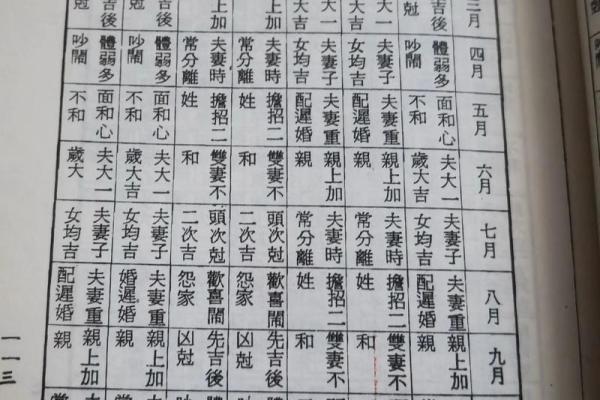 三月
吉後
尅
大吉
大吉
上加
上加
吉後
尅
四月
體弱多
吵鬧
夫妻子
女均吉
夫妻子
女均吉
夫妻時
常分離
夫妻時
常分離
體弱多
吵鬧
體弱多
吵鬧
五月
面和心
不和
夫妻重
配遲婚
夫妻重
配遲婚
擔招二
姓
擔招二
姓
面和心
不和
面和心
不和
六月
夫大一
歲大吉
親上加
親
親上加
親
雙妻不
和
雙妻不
和
夫大一
歲大吉
夫大一
歲大
七月
夫妻子
女均吉
夫妻時
常分離
夫妻時
常分離
頭次尅
二次吉
頭次尅
二次吉
夫妻子
女均吉
夫妻子
女均吉
八月
夫妻重
配遲婚
擔招二
姓
擔招二
姓
歡喜鬧
怨家
歡喜鬧
怨家
夫妻重
婚遲婚
夫妻重
配遲婚
九月
親上加
親
雙妻不
和
雙妻不
和
先吉後
凶尅
先吉後
凶尅
親上加
親
親上加
親
一一三